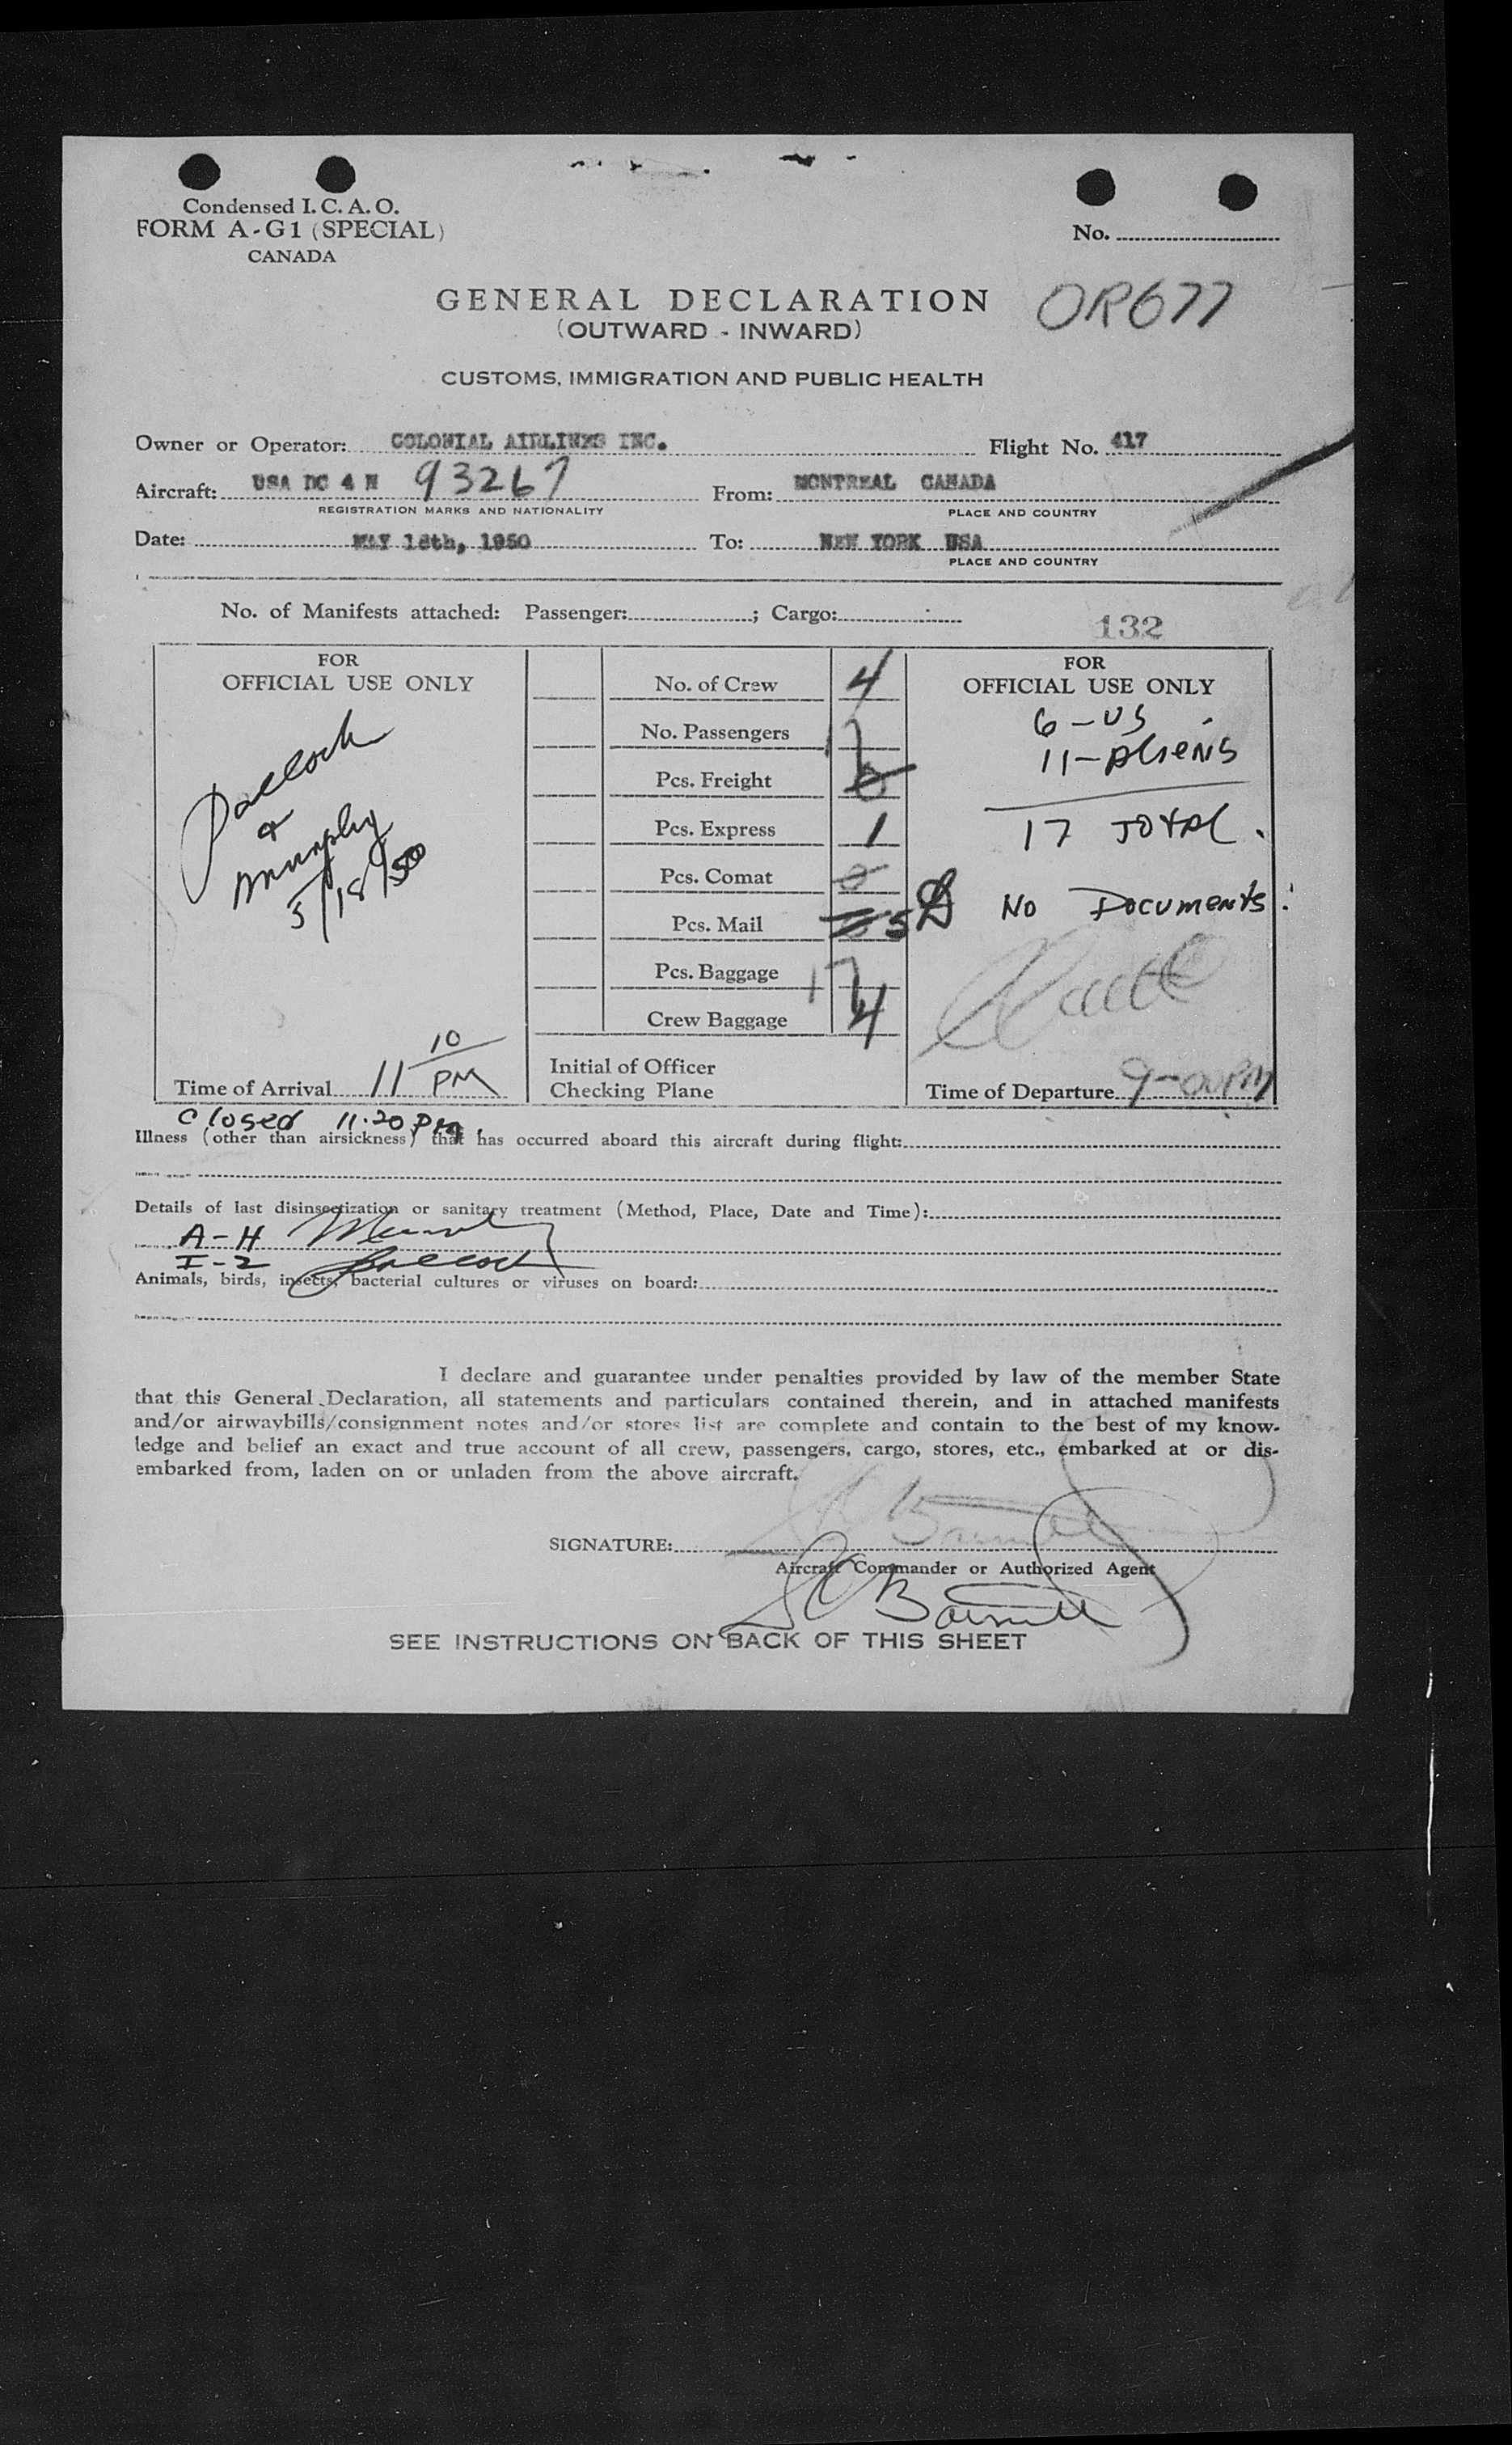 Condensed I. C. A. O.
FORM A-G1 (SPECIAL)
CANADA
No.
OR677
GENERAL DECLARATION
(OUTWARD - INWARD)
CUSTOMS, IMMIGRATION AND PUBLIC HEALTH
Owner or Operator: COLONIAL AIRLINES INC. Flight No. 417
Aircraft: USA DC 4 N 93267 From: MONTREAL CANADA
REGISTRATION MARKS AND NATIONALITY PLACE AND COUNTRY
Date: MAY 18th, 1950 To: NEW YORK USA
PLACE AND COUNTRY
No. of Manifests attached: Passenger: ; Cargo:
132
FOR
OFFICIAL USE ONLY
&
Murphy
5/18/50
Time of Arrival 11 10 PM
No. of Crew 4
No. Passengers 17
Pcs. Freight 0
Pcs. Express 1
Pcs. Comat 0
Pcs. Mail 5
Pcs. Baggage 17
Crew Baggage 4
Initial of Officer
Checking Plane
FOR
OFFICIAL USE ONLY
6-US
11-Aliens
17 TOTAL.
No Documents.
Time of Departure 9-00PM
Closed 11:20 PM.
Illness (other than airsickness) that has occurred aboard this aircraft during flight:
Details of last disinsectization or sanitary treatment (Method, Place, Date and Time):
A-H
I-2
Animals, birds, insects, bacterial cultures or viruses on board:
I declare and guarantee under penalties provided by law of the member State
that this General Declaration, all statements and particulars contained therein, and in attached manifests
and/or airwaybills/consignment notes and/or stores list are complete and contain to the best of my know-
ledge and belief an exact and true account of all crew, passengers, cargo, stores, etc., embarked at or dis-
embarked from, laden on or unladen from the above aircraft.
SIGNATURE:
Aircraft Commander or Authorized Agent
SEE INSTRUCTIONS ON BACK OF THIS SHEET